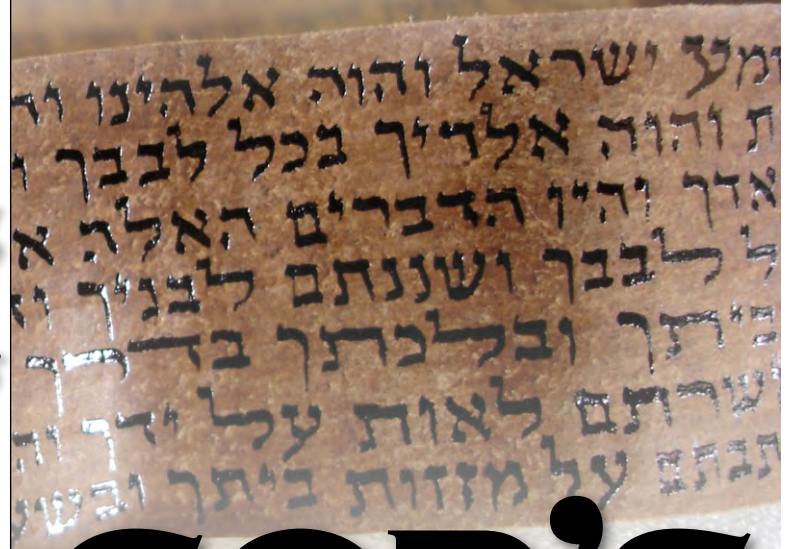 שמע ישראל יהוה אלהינו
ת יהוה אלהיך בכל לבבך ו
אדך והיו הדברים האלה א
ל לבבך ושננתם לבניך
ביתך ובלכתך בדרך
קשרתם לאות על ידך וה
תבתם על מזזות ביתך ובשע
GOD’S